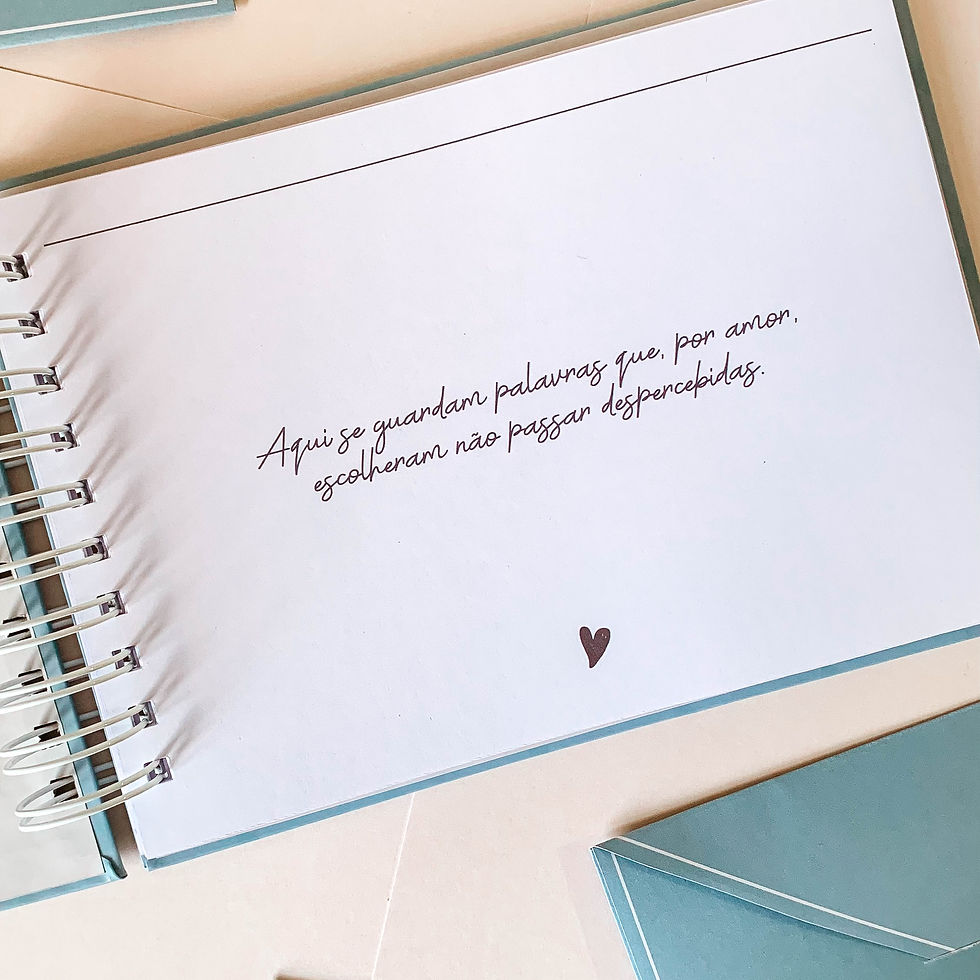 Aqui se guardam palavras que, por amor,
escolheram não passar despercebidas.